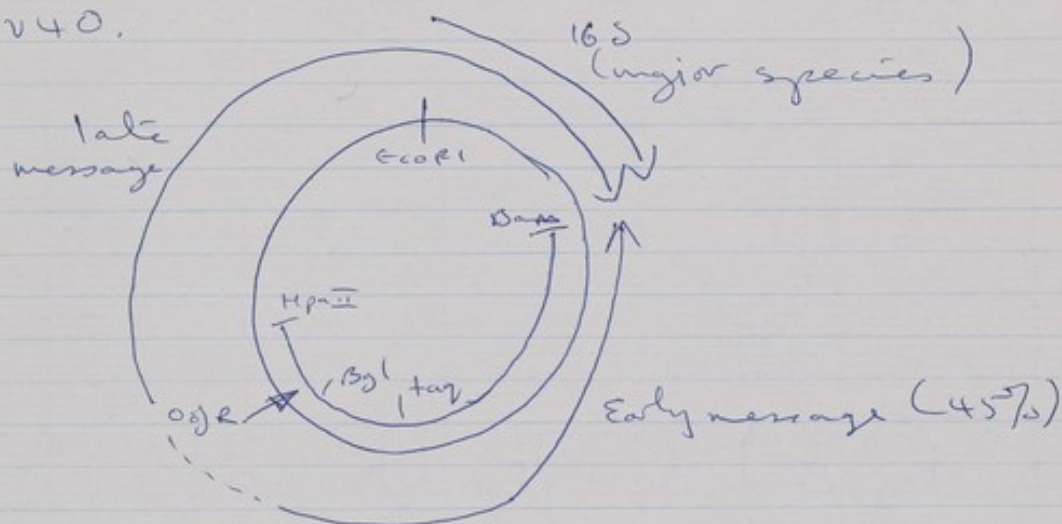 v40.
16 S
(major species)
late
message
EcoRI
Bam
HpaII
Bgl taq
O of R
Early message (45%)